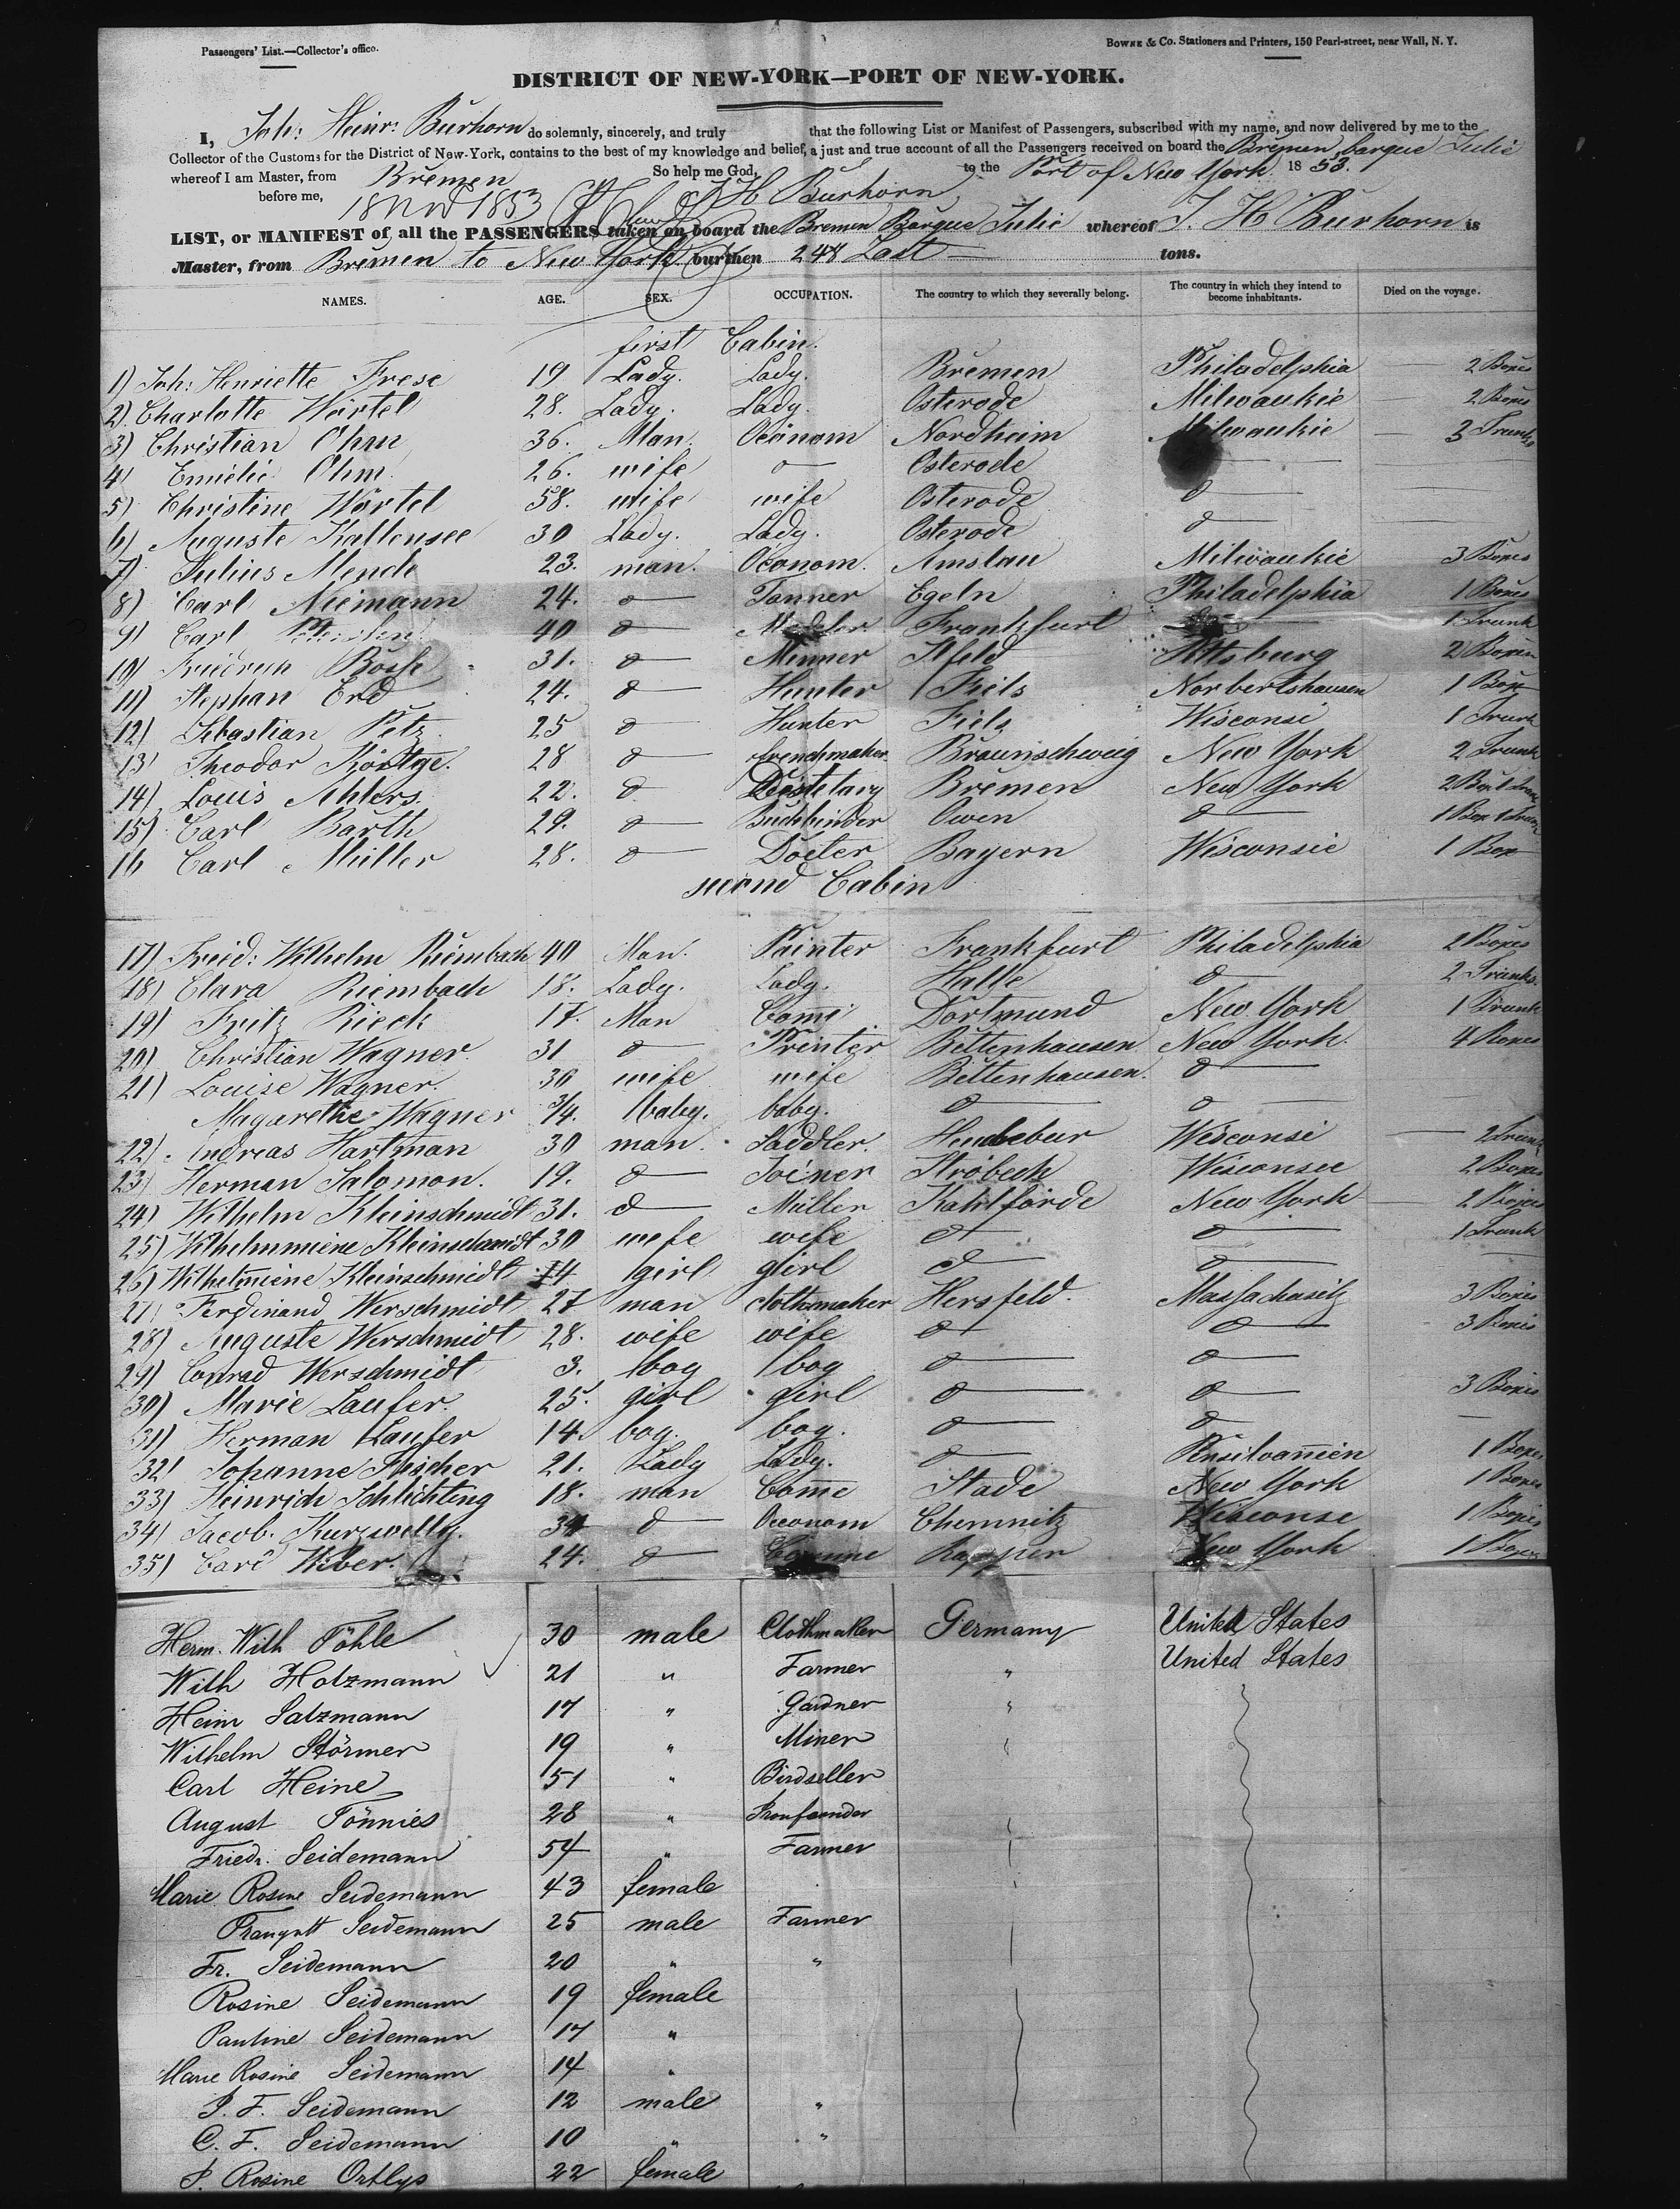 Passengers' List.—Collector's office.
BOWNE & Co. Stationers and Printers, 150 Pearl-street, near Wall, N. Y.
DISTRICT OF NEW-YORK—PORT OF NEW-YORK.
I, Joh: Heinr: Bŭrhorn do solemnly, sincerely, and truly that the following List or Manifest of Passengers, subscribed with my name, and now delivered by me to the
Collector of the Customs for the District of New-York, contains to the best of my knowledge and belief, a just and true account of all the Passengers received on board the Bremen barque Julie
whereof I am Master, from Bremen to the Port of New York 1853.
So help me God,
before me, 18 Nov 1853 J H Burhorn
LIST, or MANIFEST of all the PASSENGERS taken on board the Bremen Barque Julie whereof J. H Burhorn is
Master, from Bremen to New York burthen 248 Last tons.
NAMES. AGE. SEX. OCCUPATION. The country to which they severally belong. The country in which they intend to become inhabitants. Died on the voyage.
first Cabin.
1) Joh: Henriette Frese 19 Lady. Lady. Bremen Philadelphia — 2 Boxes
2) Charlotte Wörtel 28. Lady. Lady. Osterode Milwaukie — 2 Boxes
3) Christian Ohm 36. Man. Oconom Nordheim Milwaukie — 3 Trunks
4) Emilie Ohm 26. wife Osterode
5) Christine Wörtel 58. wife wife Osterode d
6) Auguste Kallensee 30 Lady. Lady. Osterode d
7) Julius Mende 23. man. Oconom. Amslau Milwaukie 3 Boxes
8) Carl Niemann 24. d Tanner Egeln Philadelphia 1 Boxes
9) Carl 40 d Frankfurt 1 Trunk
10) Friedrich Bosse 31. d Minner Ilfeld Pittsburg 2 Boxen
11) Stephan Erd 24. d Hunter Fiels Norbertshausen 1 Box
12) Sebastian Petz 25 d Hunter Fiels Wisconsi 1 Trunk
13) Theodor Körtge. 28 d frenchmaker Braunschweig New York 2 Trunk
14) Louis Ahlers. 22. d Bremen New York
15) Carl Barth 29. d Buchbinder Owen d
16 Carl Müller 28. d Docter Bayern Wisconsie 1 Box
second Cabin
17) Freid: Wilhelm Riembach 40 Man. Painter Frankfurt Philadelphia 2 Boxes
18) Clara Riembach 18. Lady. Lady. Halle d 2 Trunks.
19) Fritz Rieck 17. Man Comi Dortmund New York 1 Trunk
20) Christian Wagner. 31 d Printer Bettenhausen New York. 4 Boxes
21) Louise Wagner. 30 wife wife Bettenhausen. d
Magarethe Wagner 3/4. baby. baby. d d
22) Andreas Hartman 30 man. Saddler. Wisconsi — 2 Trunk
23) Herman Salomon. 19. d Joiner Ströbeck Wisconsee 2 Boxes
24) Wilhelm Kleinschmidt 31. d Müller Kahlförde New York 2 Boxes
25) Wilhelmmiene Kleinschmidt 30 wefe wefe d d 1 Trunk
26) Wilhelmiene Kleinschmidt 4 girl girl d d
27) Ferdinand Werschmidt 27 man clothmaker Hersfeld. Massachusitz 3 Boxes
28) Auguste Werschmidt 28. wife wife d d 3 Boxes
29) Conrad Werschmidt 3. boy boy d d
30) Marie Laufer. 25. girl girl d d 3 Boxes
31) Herman Laufer 14. boy. boy. d d
32) Johanne Fischer 21. Lady Lady. d Pensilvanien 1 Boxes
33) Heinrich Schlichting 18. man Come Stade New York 1 Boxes
34) Jacob. Kurzwelly. 34 d Oeconom Chemnitz Wisconse 1 Boxes
35) Carl Weber. 24. d Comme New York 1 Boxes
Herm. Wilh Töhle 30 male Clothmaker Germany United States
Wilh Holzmann 21 " Farmer " United States
Heinr Salzmann 17 " Gardner "
Wilhelm Störmer 19 " Miner "
Carl Heine 51 " Birdseller
August Tönnies 28 "
Friedr. Seidemann 54 " Farmer
Marie Rosine Seidemann 43 female
Traugott Seidemann 25 male Farmer
Fr. Seidemann 20 " "
Rosine Seidemann 19 female
Pauline Seidemann 17 "
Marie Rosine Seidemann 14 "
J. F. Seidemann 12 male "
C. F. Seidemann 10 " "
J. Rosine Ortlys 22 female